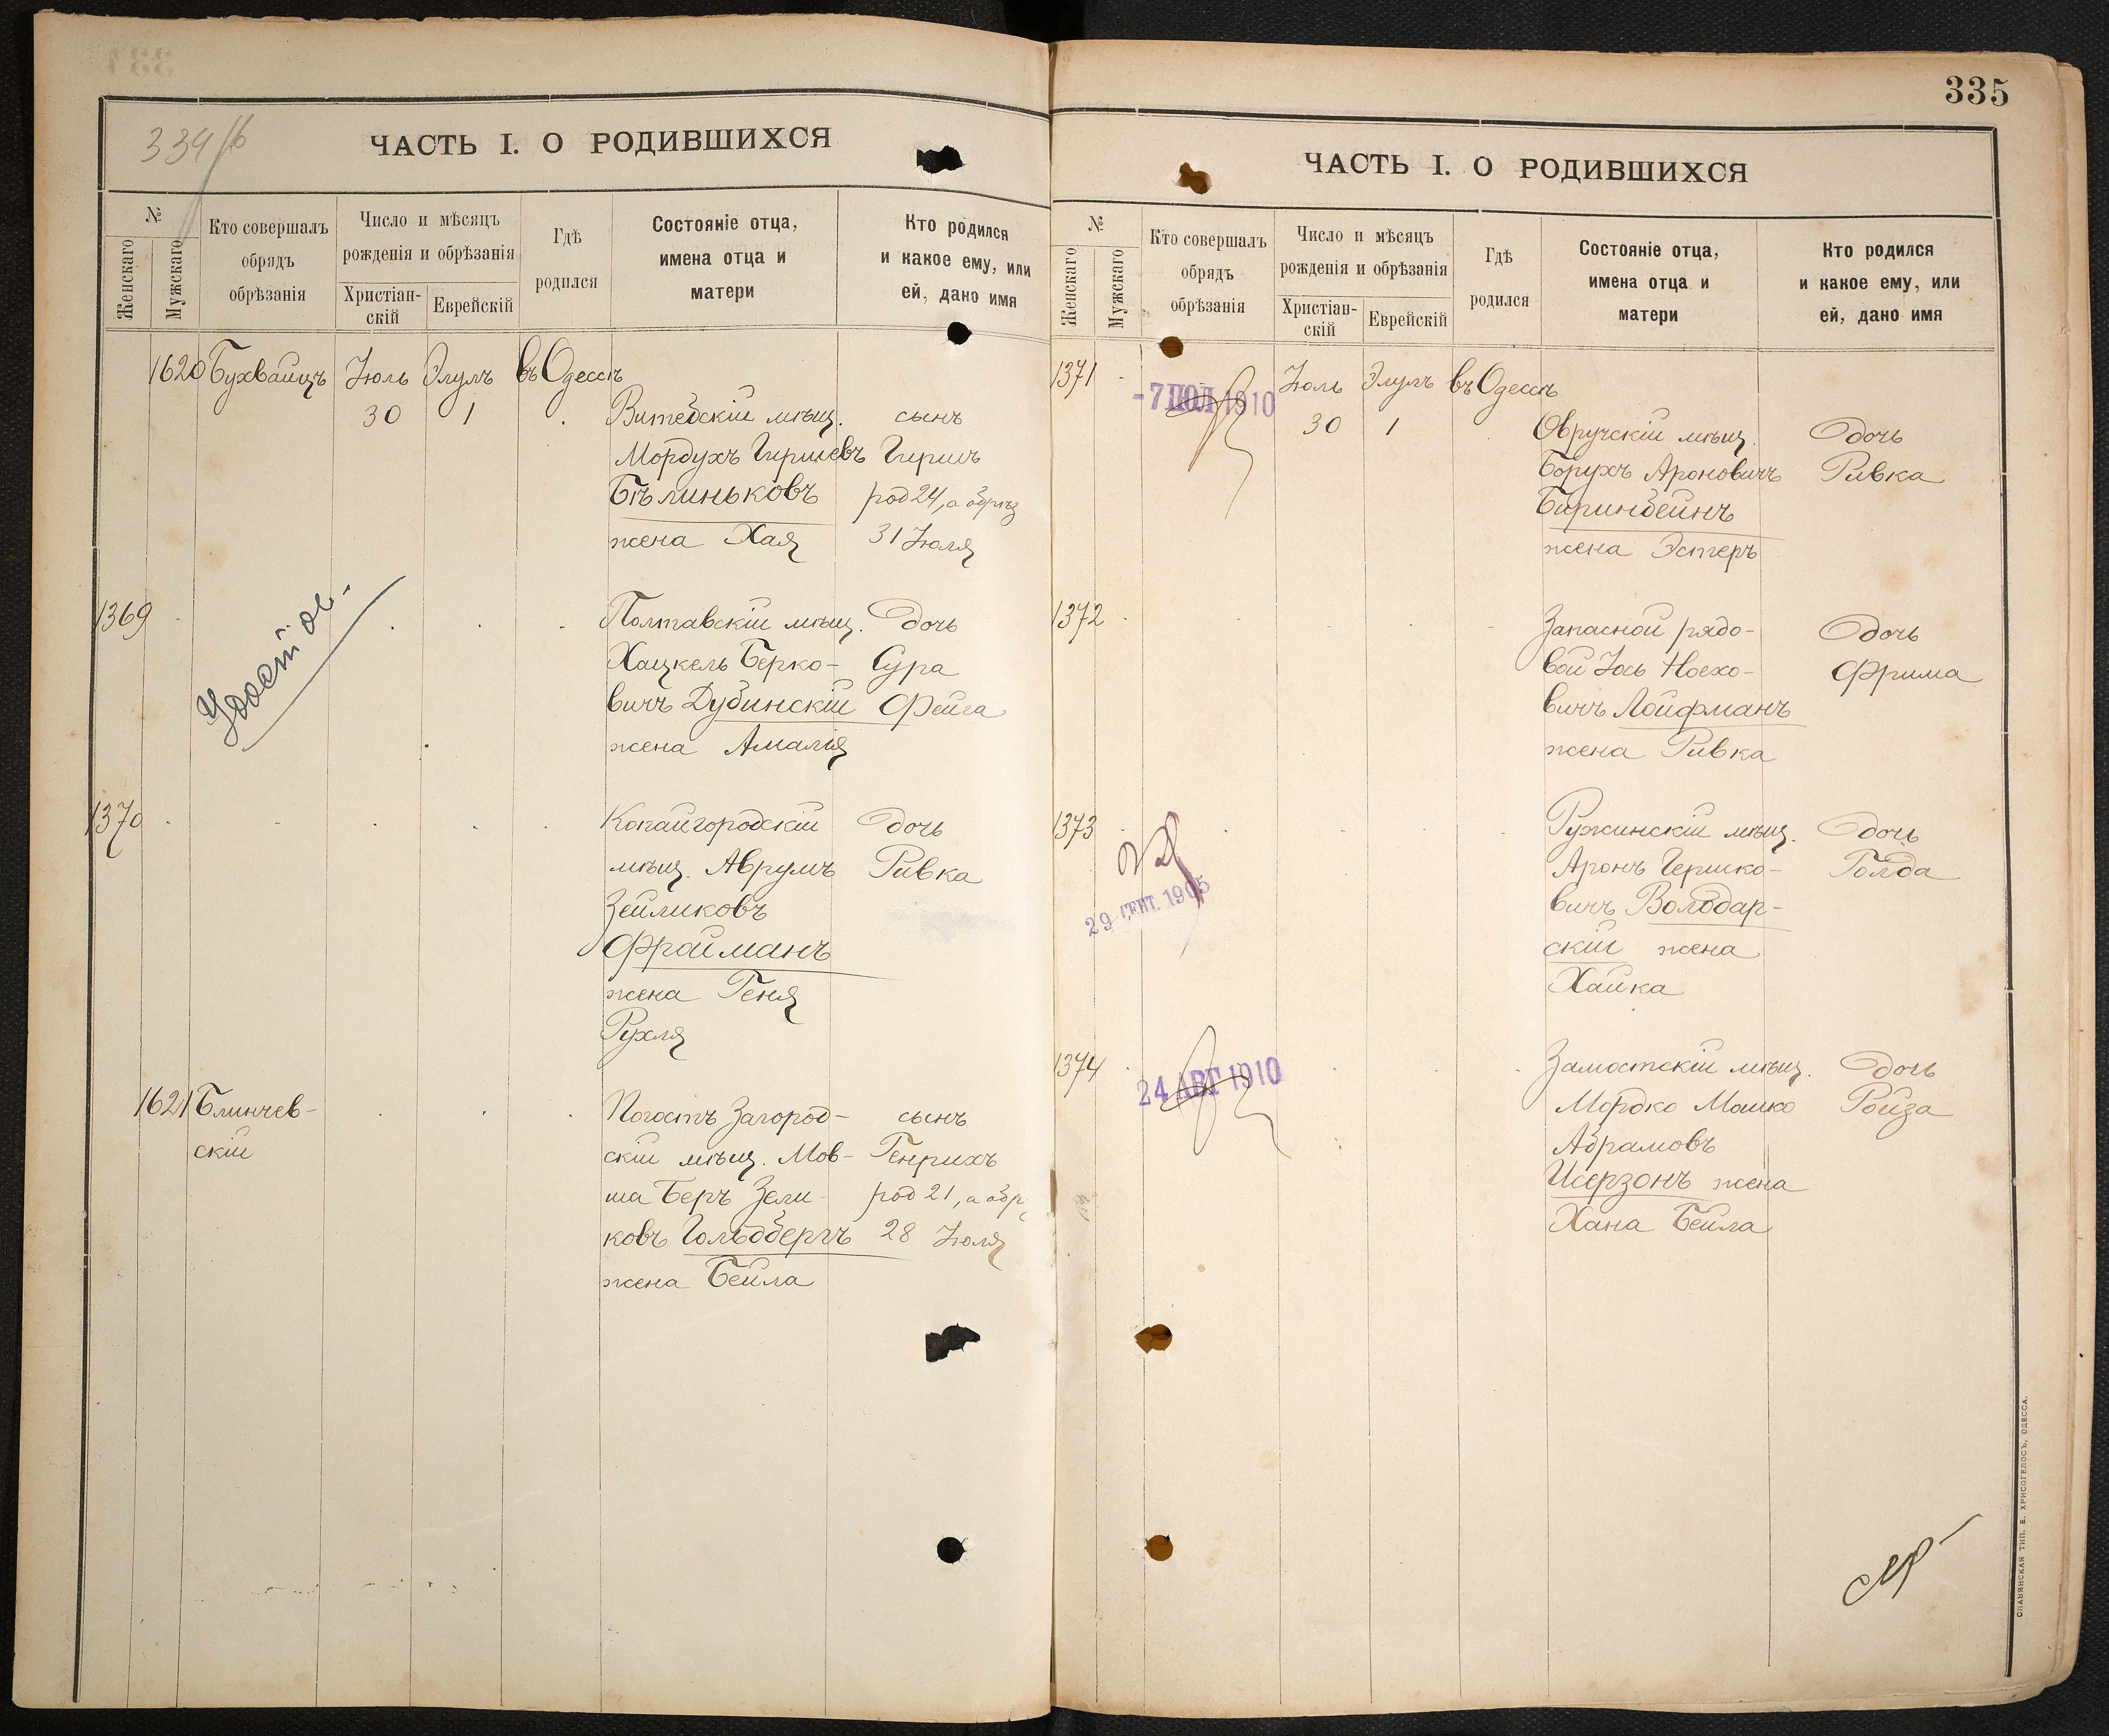 334/б
ЧАСТЬ I. О РОДИВШИХСЯ
№
Женскаго
Мужскаго
Кто совершалъ
обрядъ
обрѣзанія
Число и мѣсяцъ
рожденія и обрѣзанія
Христіан-
скій
Еврейскій
Гдѣ
родился
Состояніе отца,
имена отца и
матери
Кто родился
и какое ему, или
ей, дано имя
1620 Бухвайцъ Іюль Элулъ въ Одессѣ
30 1 Витебскій мѣщ. сынъ
Мордухъ Гиршевъ Гиршъ
Бѣлиньковъ род 24, а обрѣз
жена Хая 31 Іюля
1369 Полтавскій мѣщ. Дочь
Хацкель Берко- Сура
вичъ Дубинскій Фейга
жена Амалія
1370 Копайгородскій Дочь
мѣщ. Аврумъ Ривка
Зейликовъ
Фройманъ
жена Геня
Рухля
1621 Блинчев- Погостъ Загород- сынъ
скій скій мѣщ. Мов- Генрихъ
ша Беръ Зели- род 21, а обр
ковъ Гольдбергъ 28 Іюля
жена Бейла
335
ЧАСТЬ I. О РОДИВШИХСЯ
№
Женскаго
Мужскаго
Кто совершалъ
обрядъ
обрѣзанія
Число и мѣсяцъ
рожденія и обрѣзанія
Христіан-
скій
Еврейскій
Гдѣ
родился
Состояніе отца,
имена отца и
матери
Кто родился
и какое ему, или
ей, дано имя
1371 Іюль Элулъ въ Одессѣ
-7 ІЮЛ 1910
30 1 Овручскій мѣщ. Дочь
Борухъ Ароновичъ Ривка
Биринбейнъ
жена Эстеръ
1372 Запасной рядо- Дочь
вой Іось Ноехо- Фрима
вичъ Лойфманъ
жена Ривка
1373 Ружинскій мѣщ. Дочь
Аронъ Гершко- Голда
29 СЕНТ. 1905
вичъ Володар-
скій жена
Хайка
1374 Замостскій мѣщ. Дочь
24 АВГ 1910
Мордко Мошко Ройза
Абрамовъ
Исерзонъ жена
Хана Бейла
СЛАВЯНСКАЯ ТИП. Е. ХРИСОГЕЛОСЪ, ОДЕССА.